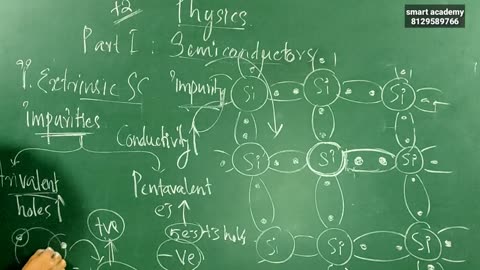 +2
Physics
Part I : Semiconductors
smart academy
8129589766
Extrinsic SC
impurities
impurity
Conductivity
trivalent
holes
Pentavalent
e's
+ve
-ve
Si Si Si
Si Si Si
Si Si Si